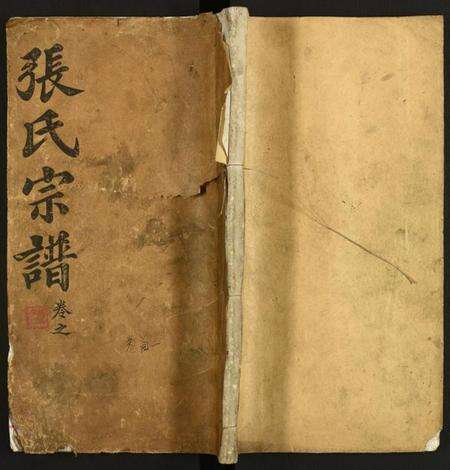 張氏宗譜
卷之